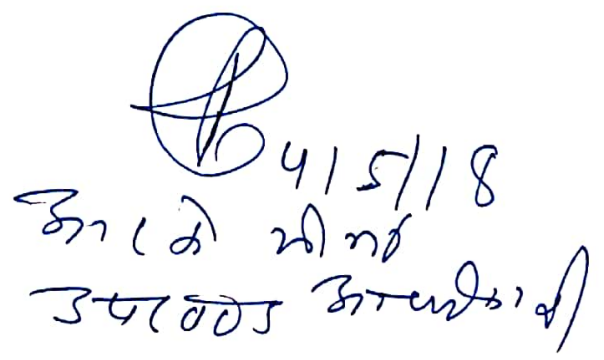 4/5/18
आर के
उपखण्ड अधिकारी